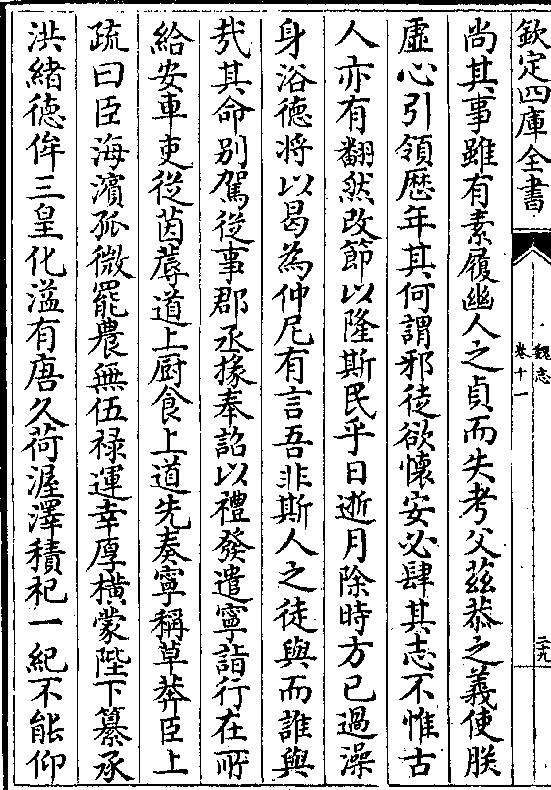 欽定四庫全書
魏志
卷十一
二十九
尚其事雖有素履幽人之貞而失考父茲恭之義使朕
虛心引領歴年其何謂邪徒欲懷安必肆其志不惟古
人亦有翻然改節以隆斯民乎日逝月除時方已過澡
身浴德將以曷為仲尼有言吾非斯人之徒與而誰與
㢤其命别駕從事郡丞掾奉詔以禮發遣寧詣行在所
給安車吏從茵蓐道上厨食上道先奏寧稱草莽臣上
疏曰臣海濱孤微罷農無伍禄運幸厚橫蒙陛下纂承
洪緒德侔三皇化溢有唐久荷渥澤積祀一紀不能仰